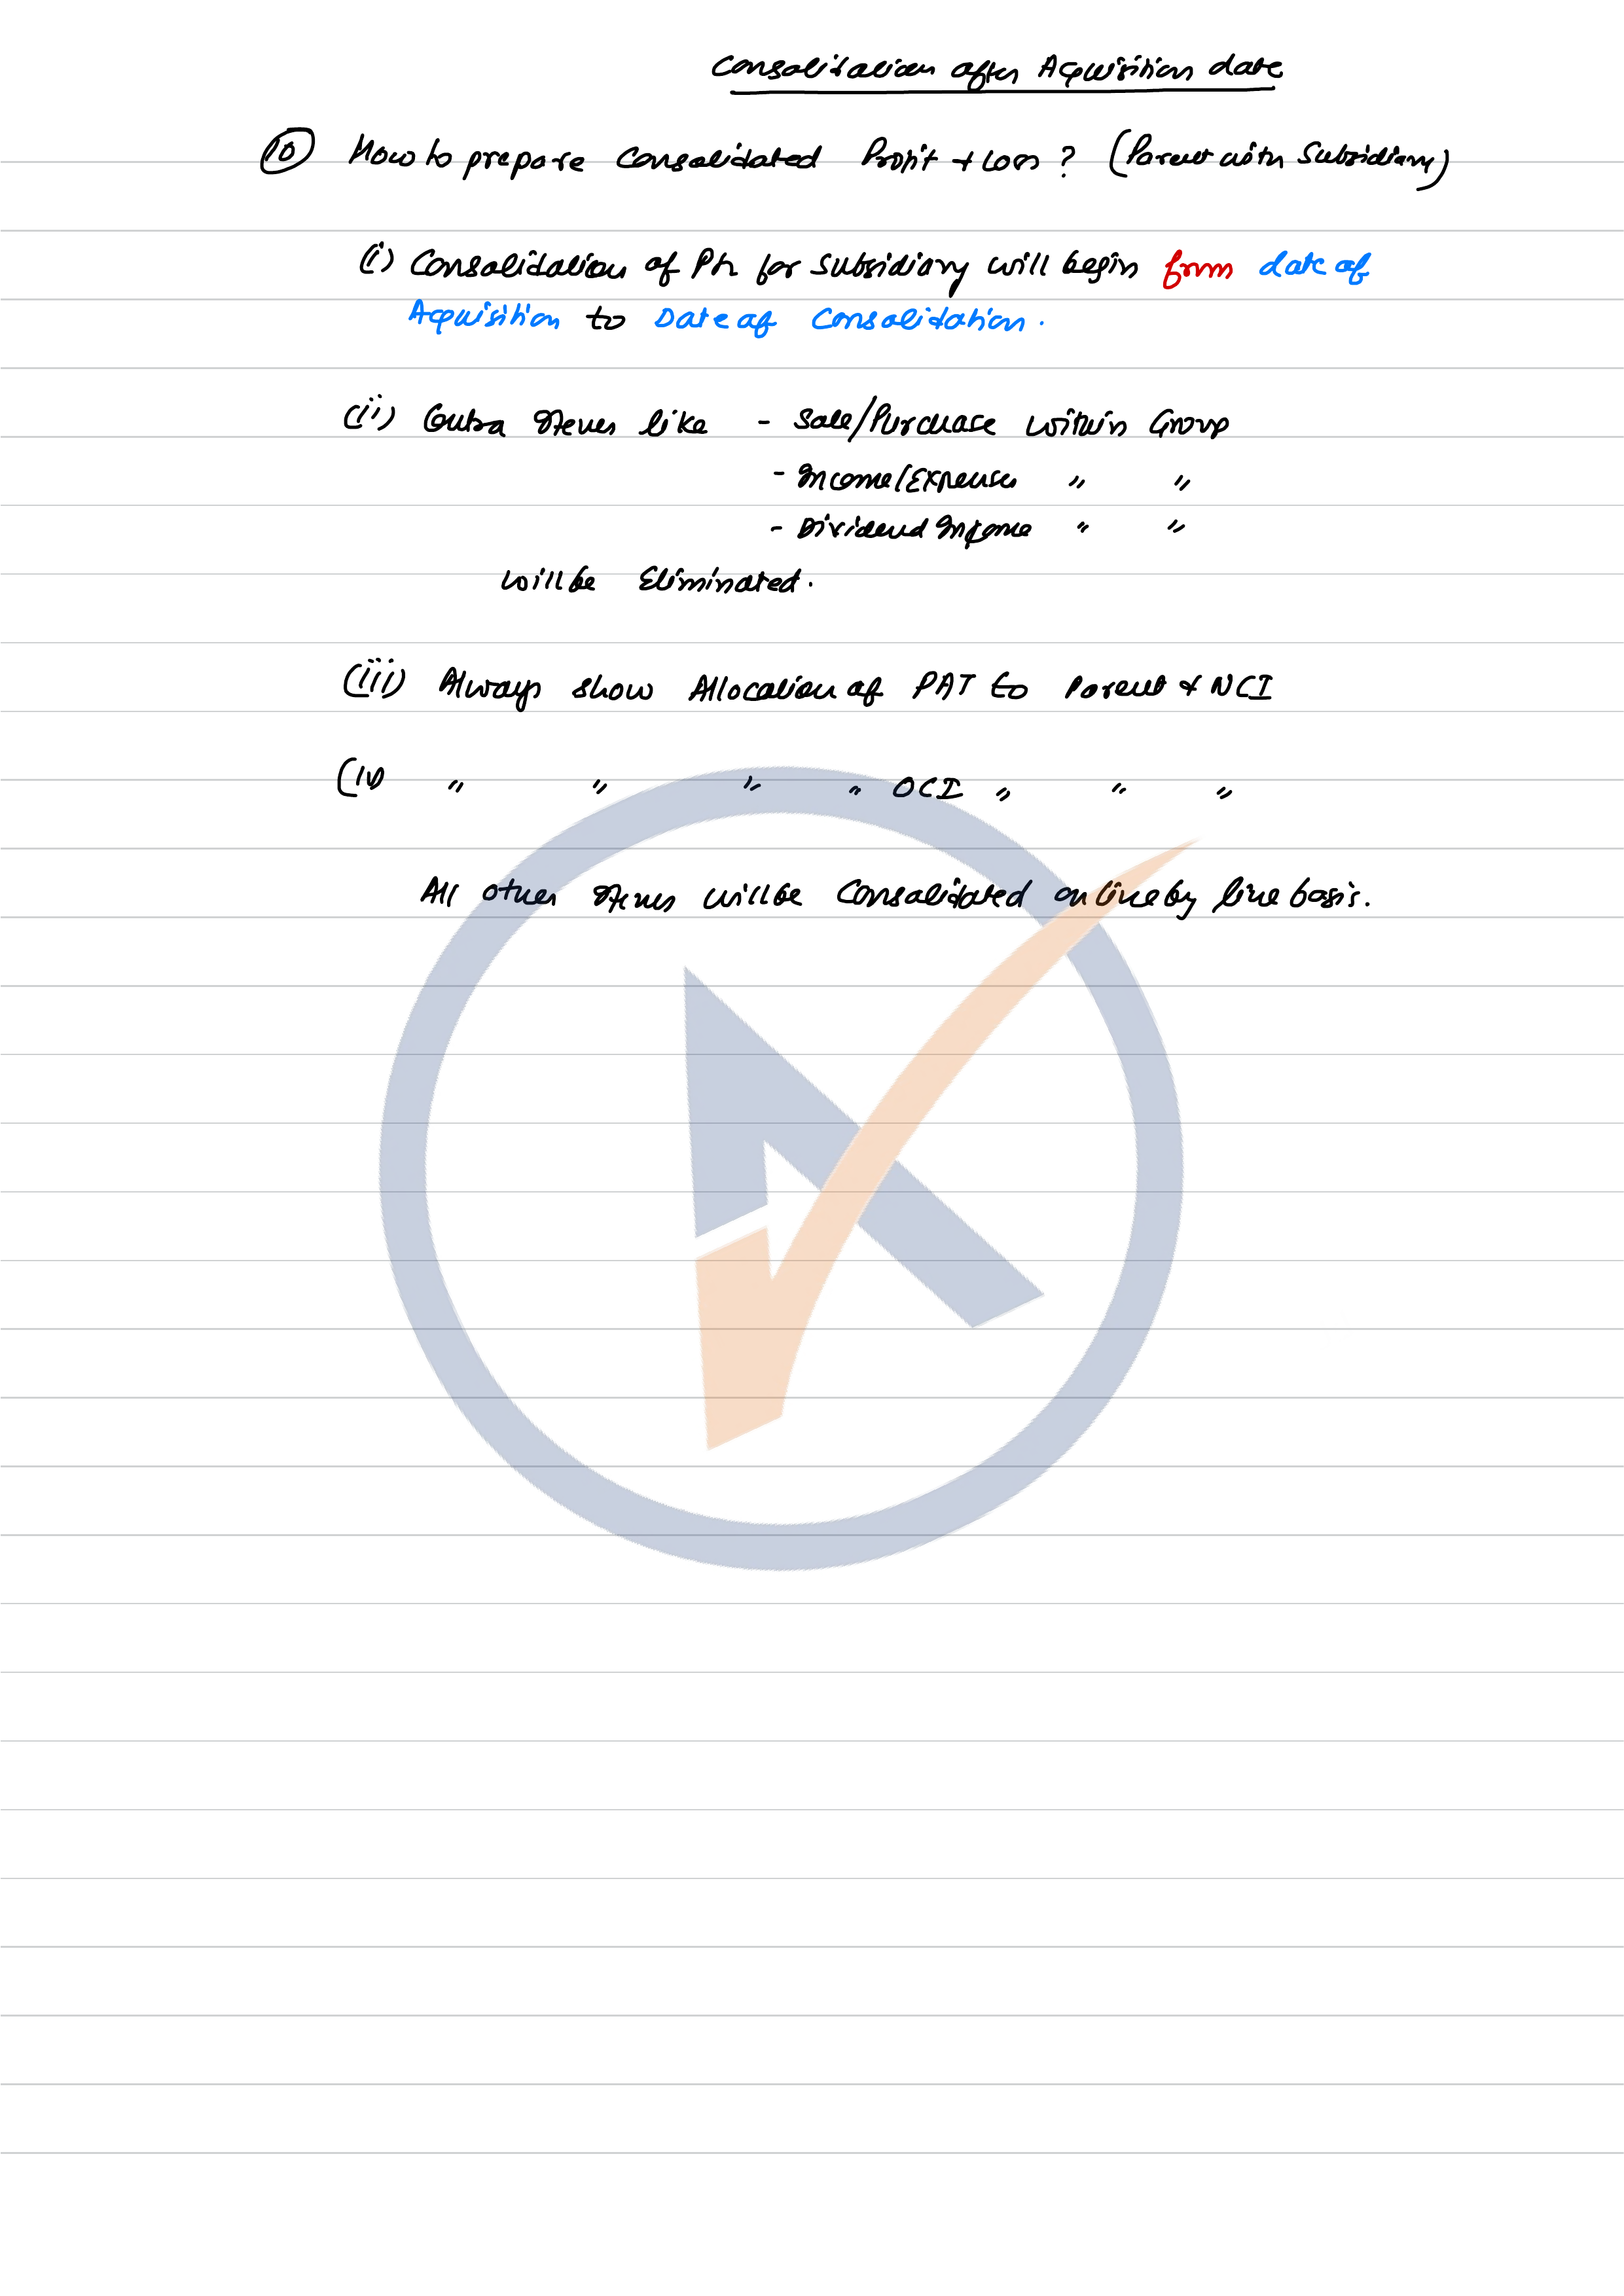 Consolidation after Acquisition date
(10) How to prepare Consolidated Profit & Loss? (Parent with Subsidiary)
(i) Consolidation of P&L for Subsidiary will begin from date of
Acquisition to Date of Consolidation.
(ii) Contra Items like - Sale/Purchase within Group
- Income/Expenses " "
- Dividend Income " "
will be Eliminated.
(iii) Always show Allocation of PAT to Parent & NCI
(iv) " " " " OCI " " "
All other Items will be Consolidated on line by line basis.